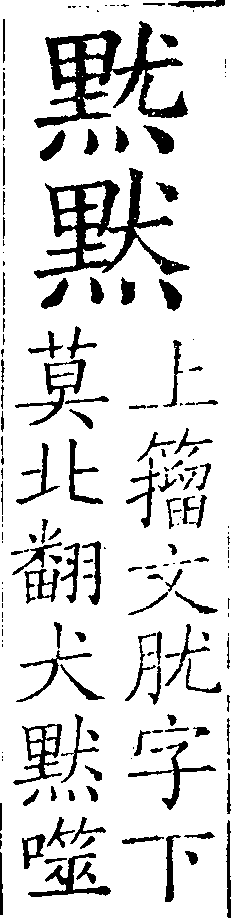 𪐗默
上籒文肬字下
莫北翻犬默噬